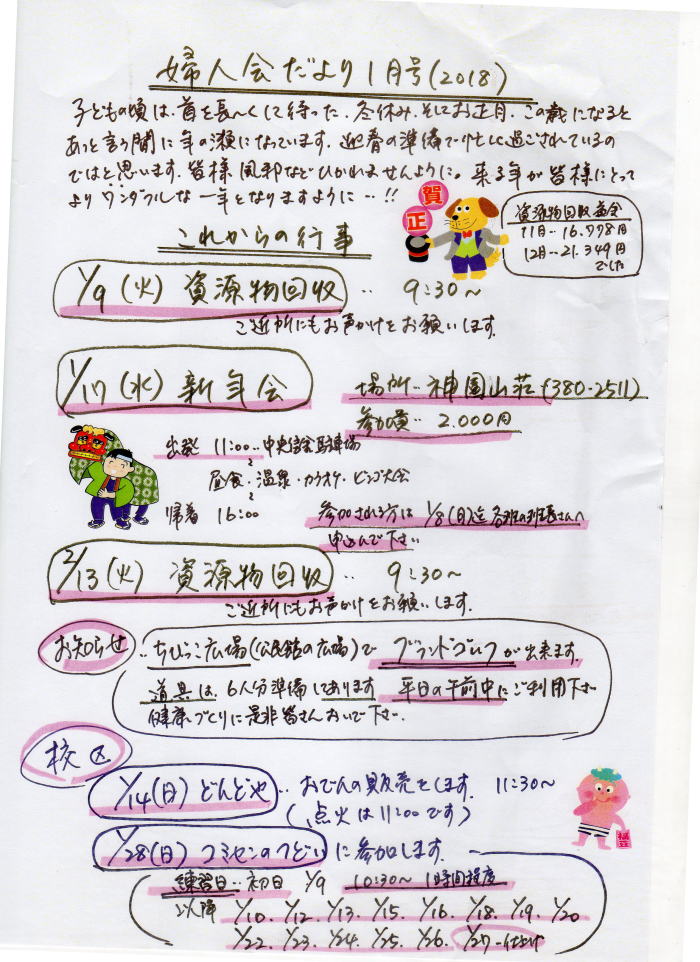 婦人会だより1月号(2018)
子どもの頃は、首を長〜くして待った、冬休み、そしてお正月、この歳になると
あっと言う間に年の瀬になっています。迎春の準備で忙しく過ごされているの
ではと思います。皆様風邪などひかれませんように。来る年が皆様にとって
よりワンダフルな一年となりますように…!!
賀
正
資源物回収益金
11月‥16.778円
12月‥21.349円
でした
これからの行事
1/9(火)資源物回収‥9:30〜
ご近所にもお声かけをお願いします。
1/17(水)新年会
場所‥神園山荘(380-2511)
参加費‥2.000円
出発 11:00‥中央信金駐車場
昼食・温泉・カラオケ・ビンゴ大会
帰着 16:00
参加される方は1/8(月)迄各班の班長さんへ
申込んで下さい
2/13(火)資源物回収‥9:30〜
ご近所にもお声かけをお願いします。
お知らせ‥ちびっこ広場(公民館の広場)でグランドゴルフが出来ます。
道具は、6人分準備してあります 平日の午前中にご利用下さい
健康づくりに是非皆さんおいで下さい。
校区
1/14(日)どんどや‥おでんの販売をします。11:30〜
(点火は11:00です)
1/28(日)コミセンのつどいに参加します。
福
練習日‥初日 1/9 10:30〜1時間程度
以降 1/10. 1/12. 1/13. 1/15. 1/16. 1/18. 1/19. 1/20
1/22. 1/23. 1/24. 1/25. 1/26. 1/27-仕上げ